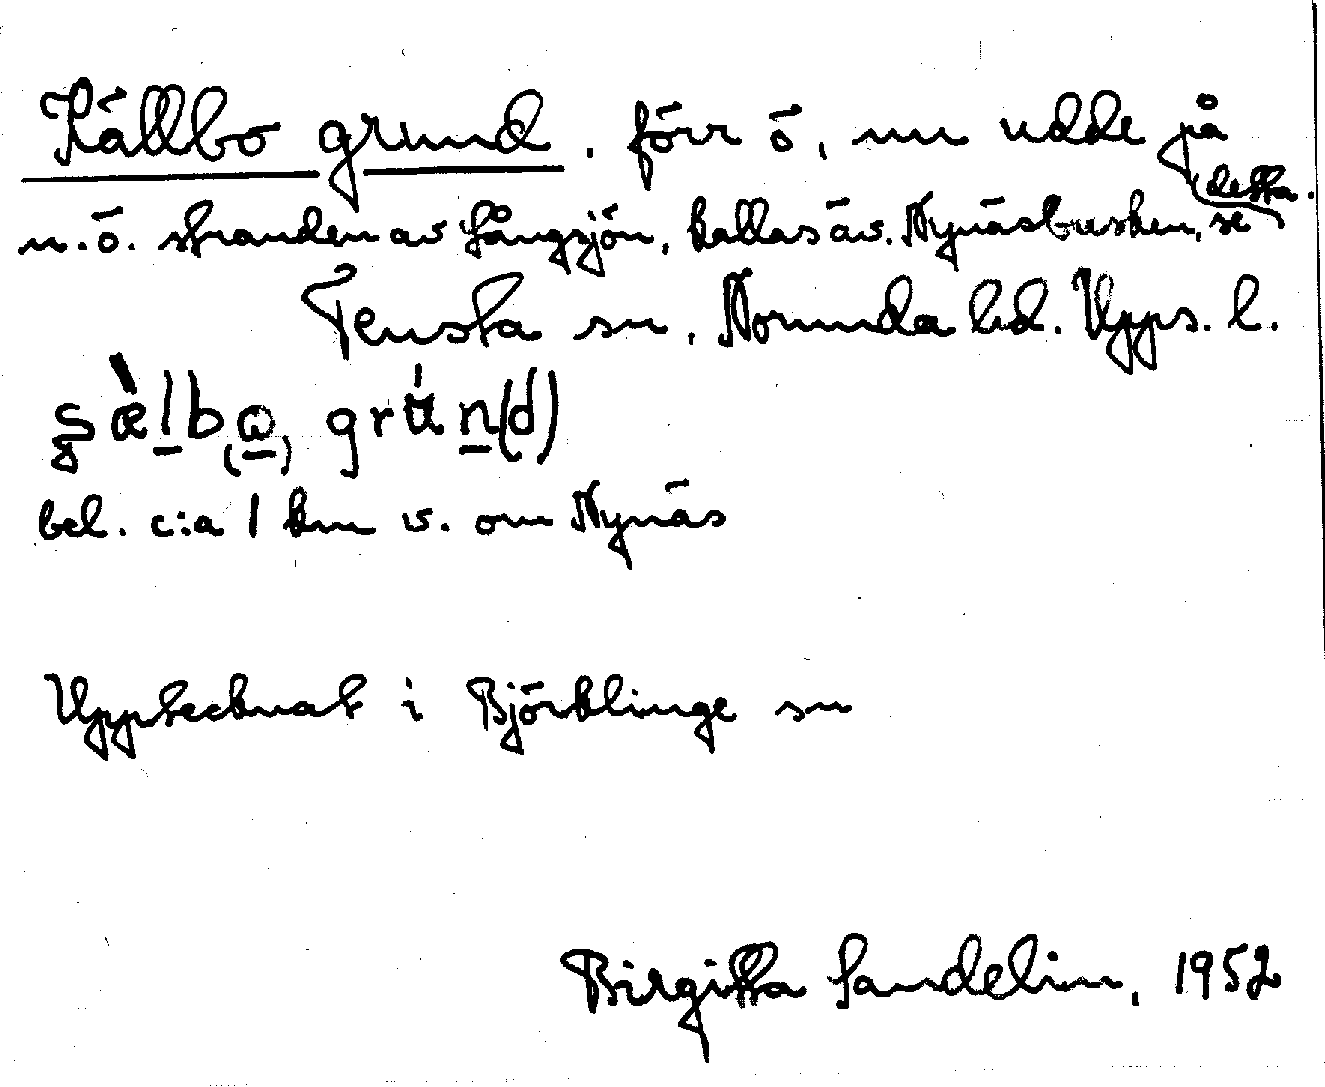 Källbo grund. förr ö, nu udde på
n.ö. stranden av Långsjön, kallas äv. Nynäsbusken, se detta.
Tensta sn, Norunda hd. Upps. l.
bel. c:a 1 km v. om Nynäs
Upptecknat i Björklinge sn
Birgitta Sandelin, 1952